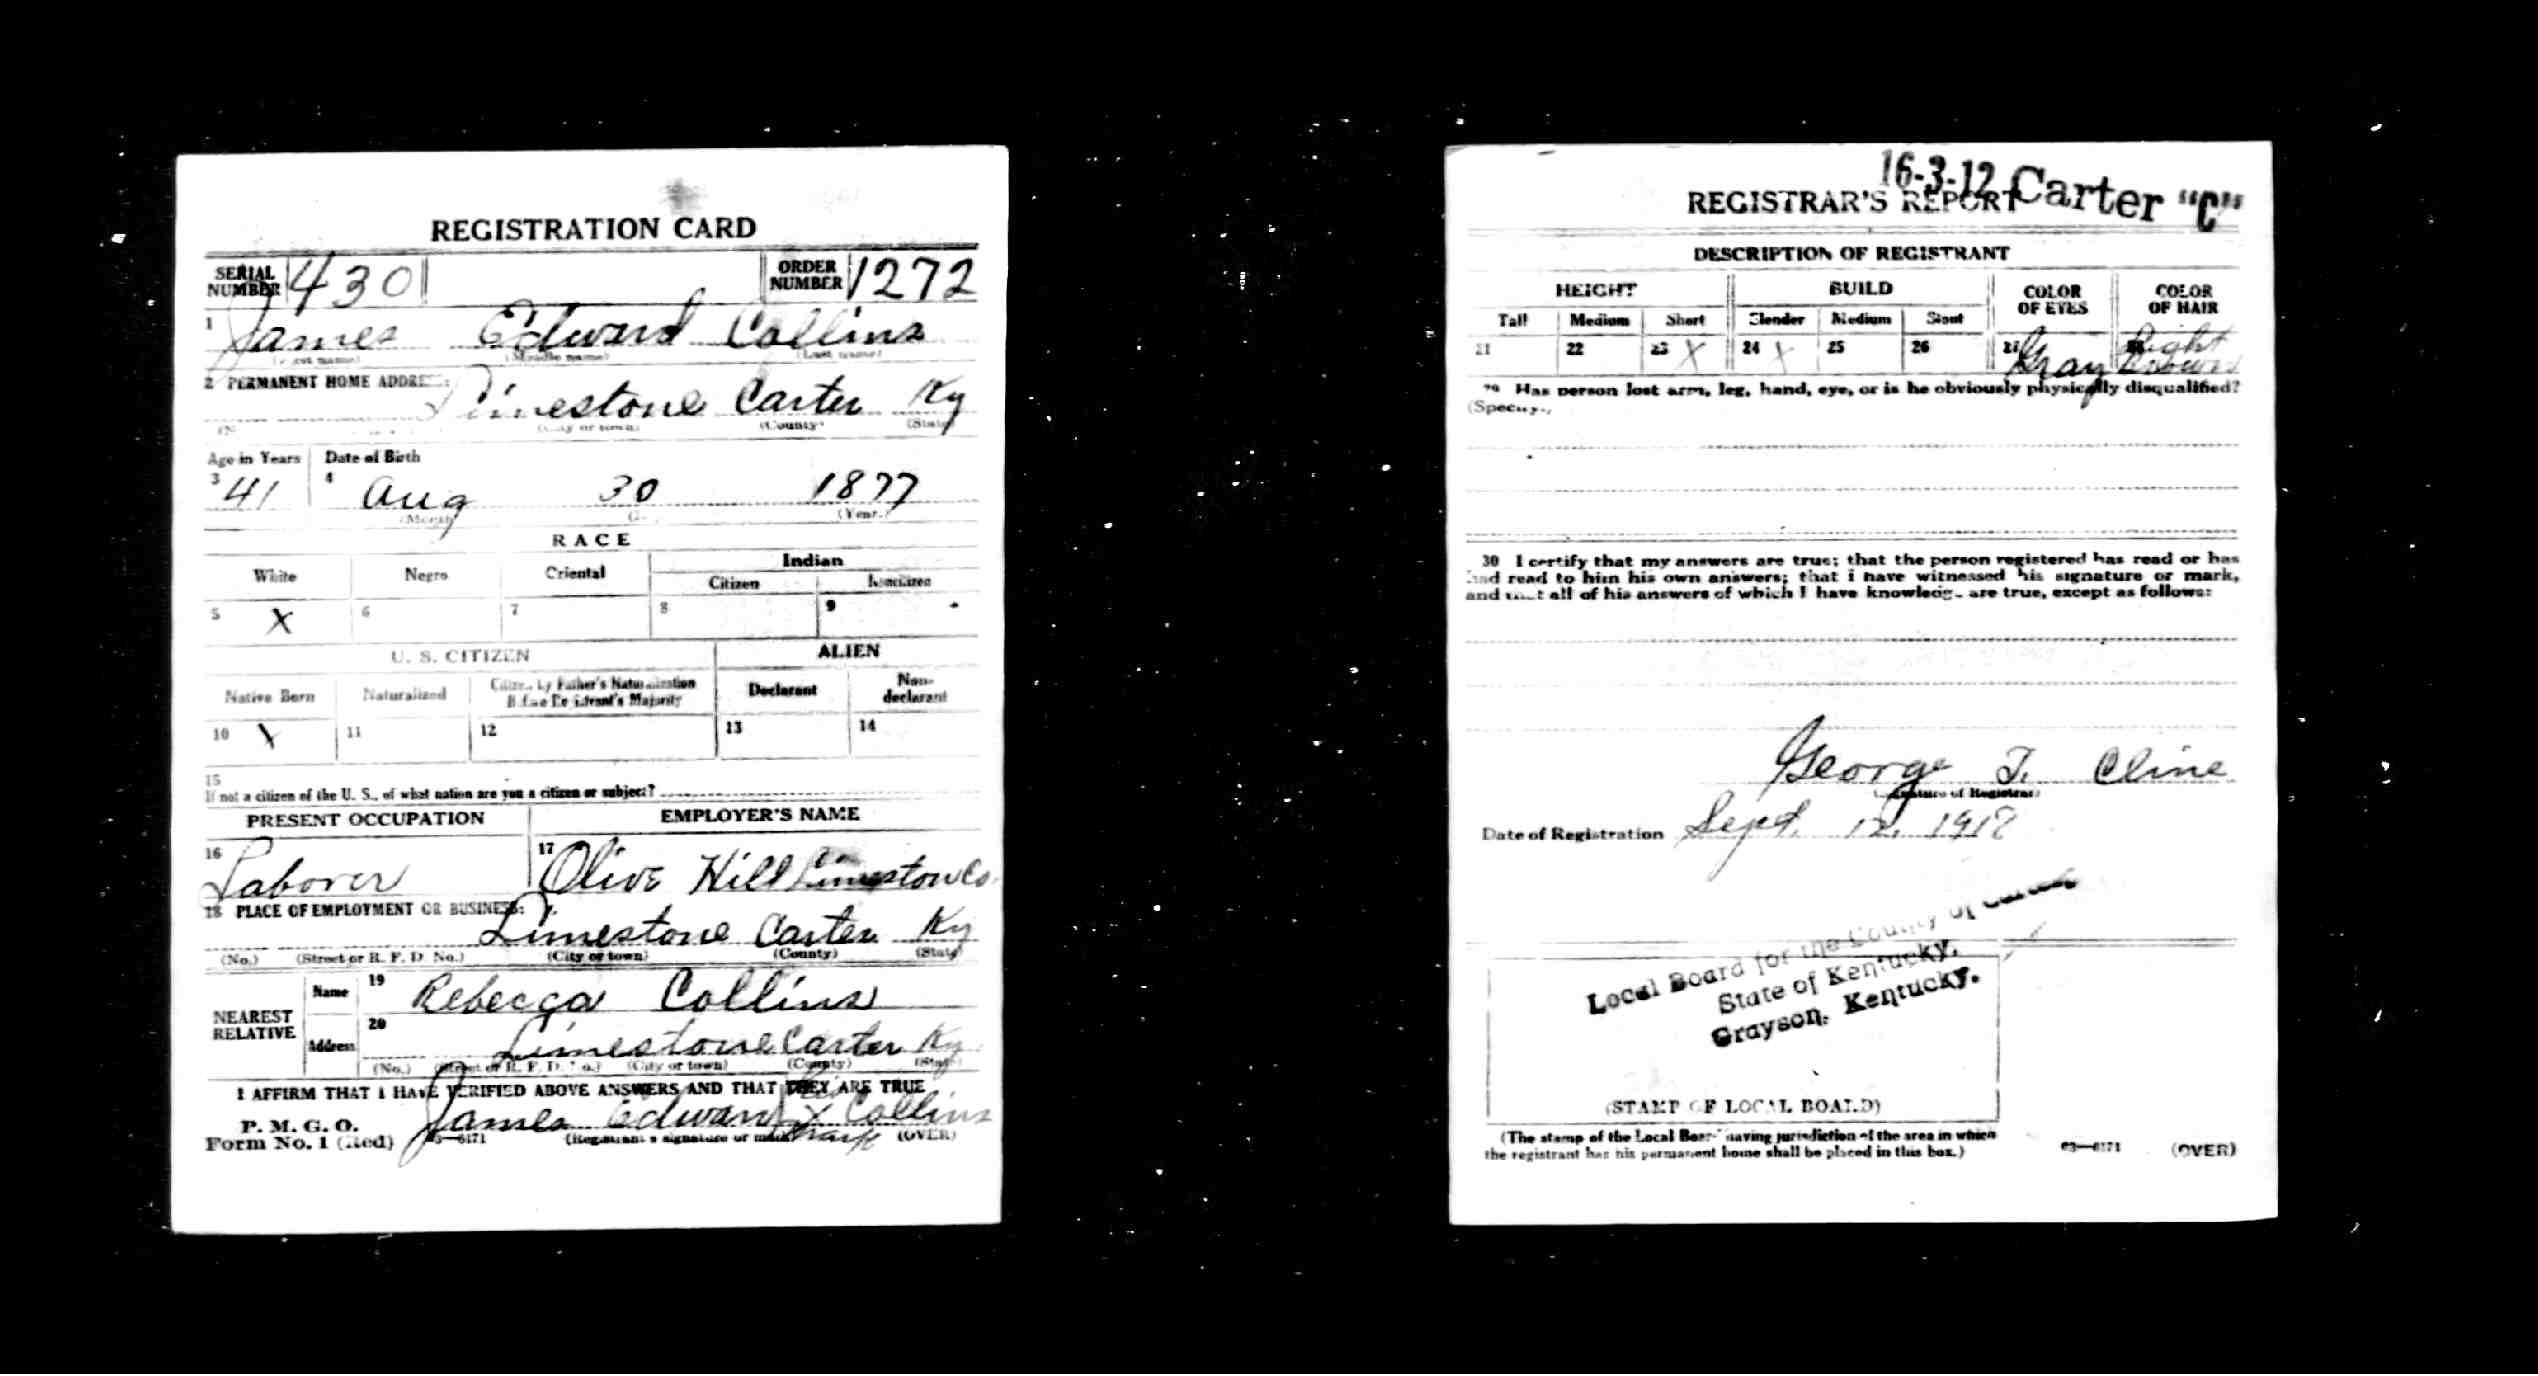 REGISTRATION CARD
SERIAL NUMBER 430 ORDER NUMBER 1272
1 James Edward Collins
(First name) (Middle name) (Last name)
2 PERMANENT HOME ADDRESS:
Limestone Carter Ky
(City or town) (County) (State)
Age in Years Date of Birth
3 41 4 Aug 30 1877
(Month) (Year.)
RACE
White Negro Oriental Indian
Citizen Noncitizen
5 X 6 7 8 9
U. S. CITIZEN ALIEN
Native Born Naturalized Citizen by Father's Naturalization Before Registrant's Majority Declarant Non-declarant
10 X 11 12 13 14
15
If not a citizen of the U. S., of what nation are you a citizen or subject?
PRESENT OCCUPATION EMPLOYER'S NAME
16 Laborer 17 Olive Hill Limestone Co.
18 PLACE OF EMPLOYMENT OR BUSINESS:
Limestone Carter Ky
(No.) (Street or R. F. D. No.) (City or town) (County) (State)
NEAREST RELATIVE Name 19 Rebecca Collins
Address 20 Limestone Carter Ky
(No.) (Street or R. F. D. No.) (City or town) (County) (State)
I AFFIRM THAT I HAVE VERIFIED ABOVE ANSWERS AND THAT THEY ARE TRUE
his
James Edward X Collins
mark
P. M. G. O.
Form No. 1 (Red) 03—6171 (Registrant's signature or mark) (OVER)
16-3-12 Carter "C"
REGISTRAR'S REPORT
DESCRIPTION OF REGISTRANT
HEIGHT BUILD COLOR OF EYES COLOR OF HAIR
Tall Medium Short Slender Medium Stout
21 22 23 X 24 X 25 26 27 Gray 28 Light Brown
29 Has person lost arm, leg, hand, eye, or is he obviously physically disqualified?
(Specify.)
30 I certify that my answers are true; that the person registered has read or has
had read to him his own answers; that I have witnessed his signature or mark,
and that all of his answers of which I have knowledge are true, except as follows:
George T. Cline
(Signature of Registrar)
Date of Registration Sept. 12, 1918
Local Board for the County of Carter
State of Kentucky.
Grayson, Kentucky.
(STAMP OF LOCAL BOARD)
(The stamp of the Local Board having jurisdiction of the area in which
the registrant has his permanent home shall be placed in this box.)
03—6171 (OVER)